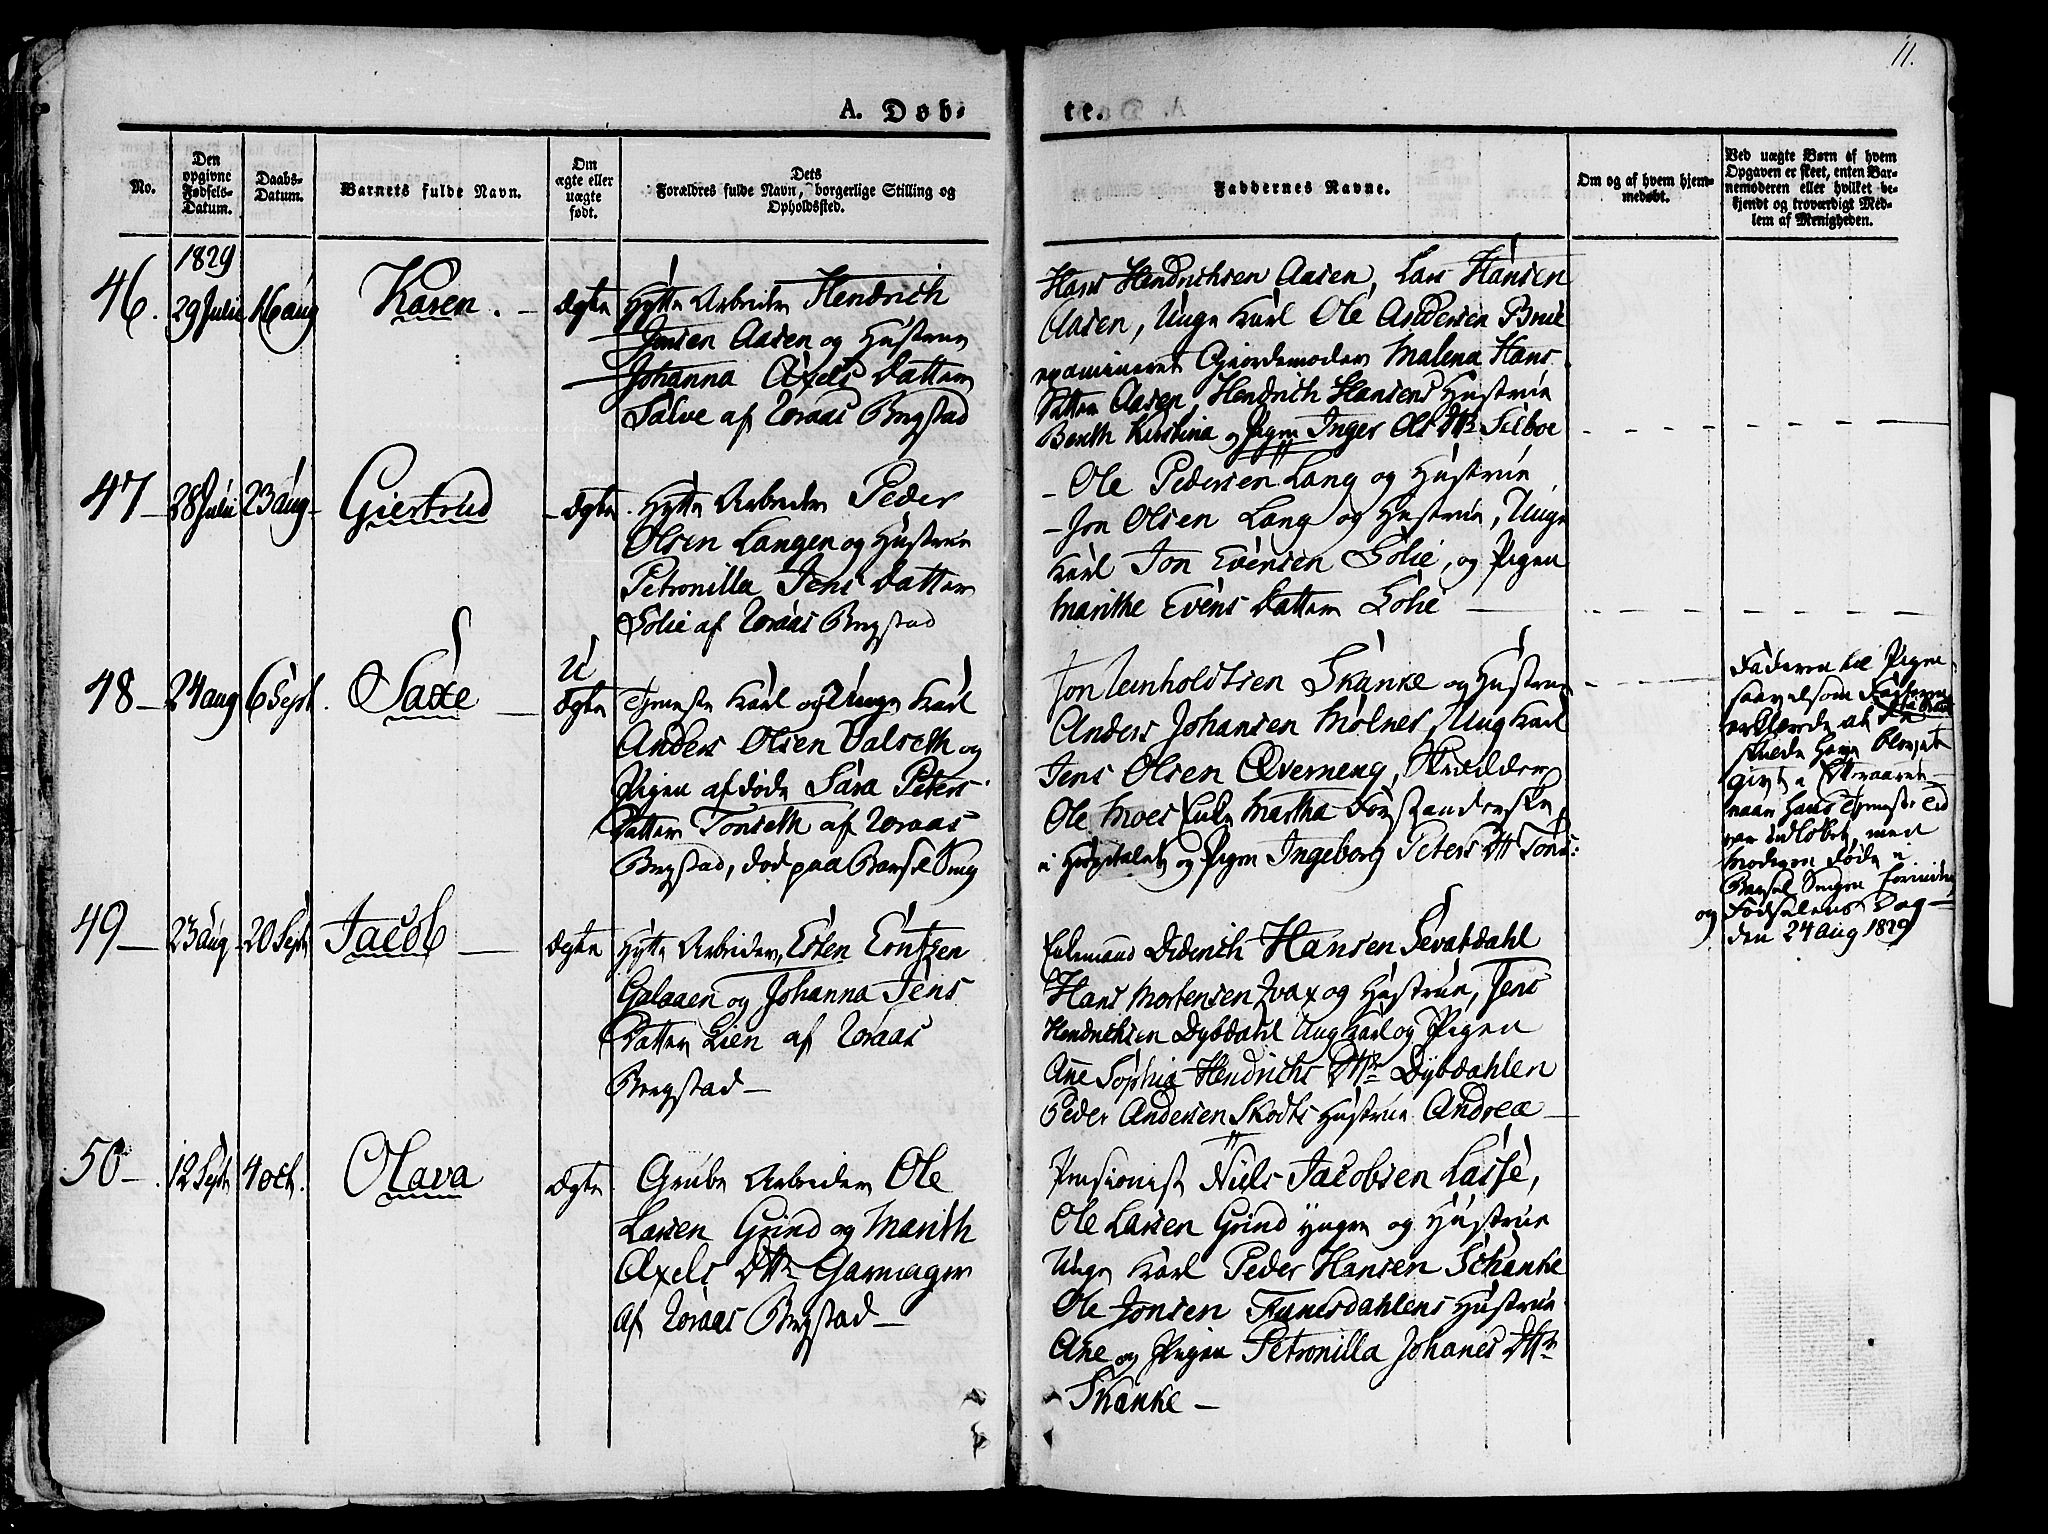 11.
A. Døb-
te.
No.
Den opgivne Fødsels-Datum.
Daabs-Datum.
Barnets fulde Navn.
Om ægte eller uægte født.
Dets
Forældres fulde Navn, borgerlige Stilling og
Opholdssted.
Faddernes Navne.
Om og af hvem hjem-
medøbt.
Ved uægte Børn af hvem
Opgaven er skeet, enten Bar-
nemoderen eller hvilket be-
kjendt og troværdigt Med-
lem af Menigheden.
1829
46. 29 Julii 16 aug Karen. - Ægte
Hytte Arbeider Hendrich
Jonsen Aasen og Hustrue
Johanna Axels Datter
Salve af Røraas Bergstad
Hans Hendrichsen Aasen, Lars Hansen
Aasen, Unge Karl Ole Andersen Brue
examineret Gjordemoder Malena Hans
Datter Aasen, Hendrich Hansens Hustrue
Bereth Kirstina og Pigen Inger Ols Dtr
47 - 28 Julii 23 aug - Giertrud - Ægte
Hytte Arbeider Peder
Olsen Langen og Hustrue
Petronilla Jens Datter
Solie af Røraas Bergstad
- Ole Pedersen Lang og Hustrue
- Jon Olsen Lang og Hustrue, Unge
Karl Jon Evensen Solie, og Pigen
Marithe Evens Datter Solie
48 - 24 aug 6 Sept. Saxe - U Ægte
Tjeneste Karl og Unge Karl
Anders Olsen Valseth og
Pigen afdøde Sara Peters
Datter Tonseth af Røraas
Bergstad, død paa Barsel Seng
Jon Reinholdtsen Skanke og Hustrue
Anders Johansen Molnes, Ung Karl
Jens Olsen Øverneng, Skrædder
Ole Moes Enke Martha Forstanderske
i Hospitalet og Pigen Ingeborg Peters Dtr Tons:
Faderen til Pigen
saavelsom Fadderne
erklærde at
skulde have bleven
givt i Efteraaret
naar Hans Tjeneste Tid
var udløben, men
Moderen døde i
Barsel Sengen
og Fødselens Dag -
den 24 Aug 1829
49 - 23 aug - 20 Sept Jacob - Ægte
Hytte Arbeider, Esten Erntzen
Galaaen og Johanna Jens
Datter Lien af Røraas
Bergstad -
Enkemand Diderich Hansen Sevatdahl
Hans Mortensen Kvax og Hustrue, Jens
Hendrichsen Dybdahl Ung Karl og Pigen
Ane Sophia Hendrichs Dtr Dybdahlen
Peder Andersen Skodts Hustrue Andrea -
50 - 12 Sept 4 oct. Olava Ægte
Grube Arbeider Ole
Larsen Grind og Marith
Axels Dtr Garmager
af Røraas Bergstad -
Pensionist Niels Jacobsen Lasse,
Ole Larsen Grind yngre og Hustrue
Unge Karl Peder Hansen Schanke
Ole Jonsen Funesdahlens Hustrue
Ane og Pigen Petronilla Johanes Dtr
Skanke -